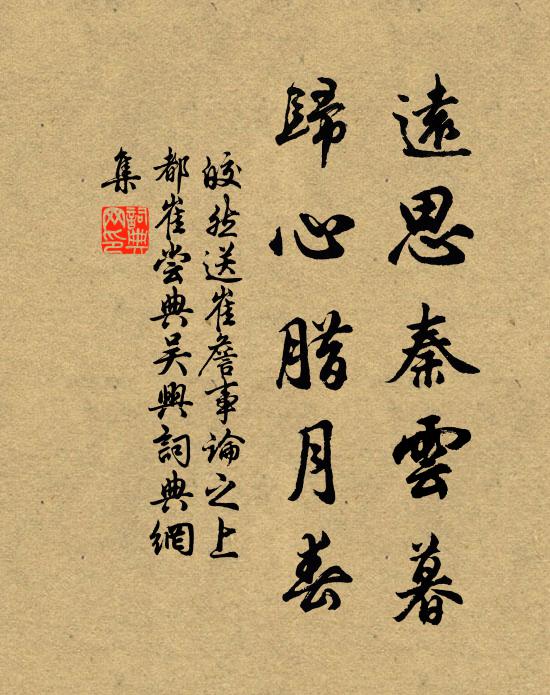 遠思秦雲暮
歸心腊月春
皎然送崔詹事論之上
都崔嘗典吴興詞典網
集
詞典網印